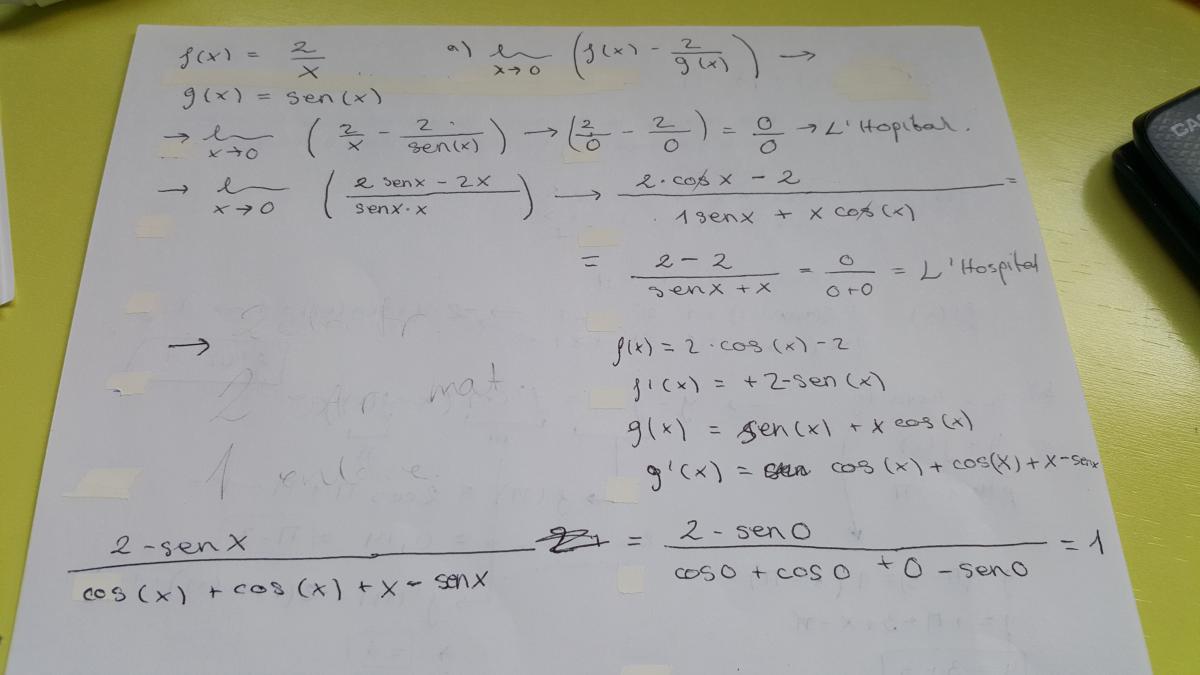 f(x) = 2/x a) lim x→0 (f(x) - 2/g(x)) →
g(x) = sen(x)
→ lim x→0 (2/x - 2/sen(x)) → (2/0 - 2/0) = 0/0 → L'Hopital.
→ lim x→0 (2 senx - 2x / senx·x) → 2·cos x - 2 / 1 senx + x cos(x) =
= 2-2 / senx + x = 0 / 0+0 = L'Hospital
→ f(x) = 2·cos(x) - 2
f'(x) = +2-sen(x)
2 mat.
g(x) = sen(x) + x cos(x)
1
g'(x) = cos(x) + cos(x) + x-senx
2-senx / cos(x) + cos(x) + x - senx = 2 - sen0 / cos0 + cos0 + 0 - sen0 = 1
CAS